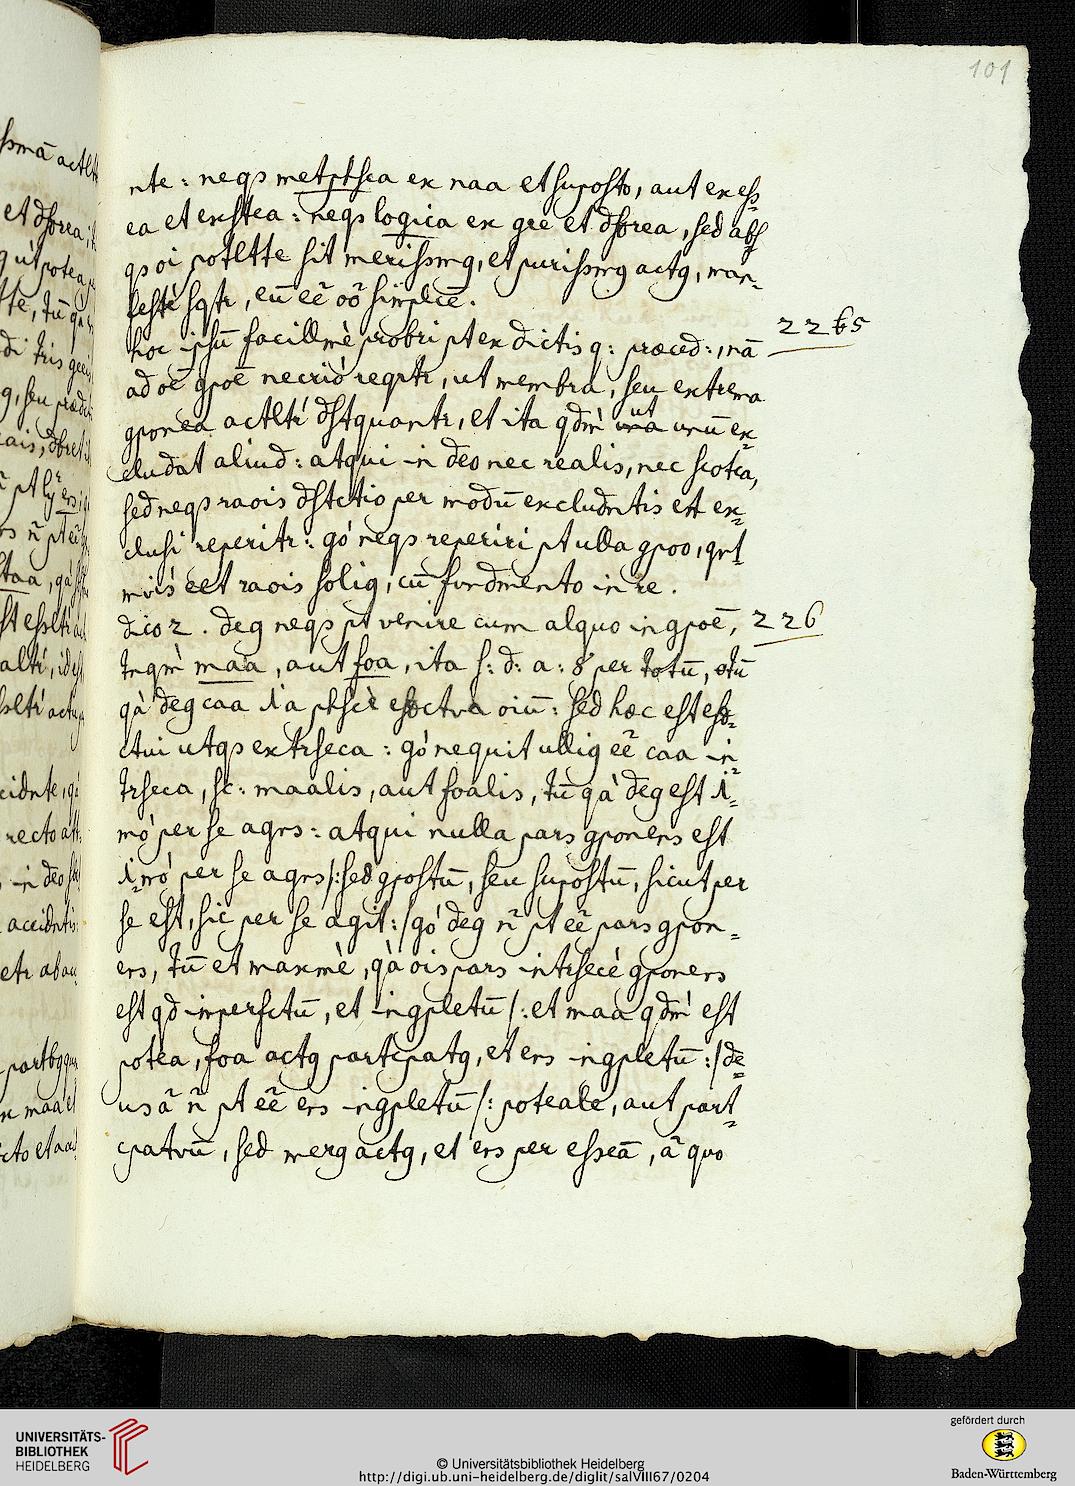 101
nte: neqs metphsca ex naa et suposto, aut ex es=
ea et exstea: neqs logica ex gre et dfsrea, sed abs
qs oi potltte sit merissmg, et purissmg actg, man=
festé sqtr, eū eē oō simplicē.
hoc ipsū facillmè probri pt ex dictis q: præced:, nā
2265
ad oē gpoē necriò reqrtr, ut membra, seu extrema
gponea actltr dstquantr, et ita qdm ut unū ex=
cludat aliud: atqui in deo nec realis, nec scotca,
sed neqs raois dstctio per modū excludntis et ex=
clusi reperitr: gó neqs reperiri pt ulla gpoo, qnt
mvis eet raois solig, cū fundmento in re.
dico 2. deg neqs pt venire cum alquo in gpoē,
226
tnqm maa, aut foa, ita s: d: a: 8 per totū, tū
qà deg caa 1a phscè effctva oiū: sed hæc est eff=
ctui utqs extrseca: gó nequit ullig eē caa in=
trseca, sc: maalis, aut foalis, tū qà deg est 1=
mò per se agns: atqui nulla pars gponens est
1mò per se agns /: sed gpostū, seu supostū, sicut per
se est, sic per se agit :/ gó deg ñ pt eē pars gpon=
ens, tū et maxmè, qà ois pars intrsecè gponens
est qd imperfctū, et ingpletū /: et maa qdm est
potea, foa actg partcpatg, et ens ingpletū :/ de=
us ā ñ pt eē ens ingpletū /: poteale, aut part=
cpatvū, sed merg actg, et ens per esseā, ā quo
UNIVERSITÄTS-
BIBLIOTHEK
HEIDELBERG
© Universitätsbibliothek Heidelberg
http://digi.ub.uni-heidelberg.de/diglit/salVIII67/0204
gefördert durch
Baden-Württemberg